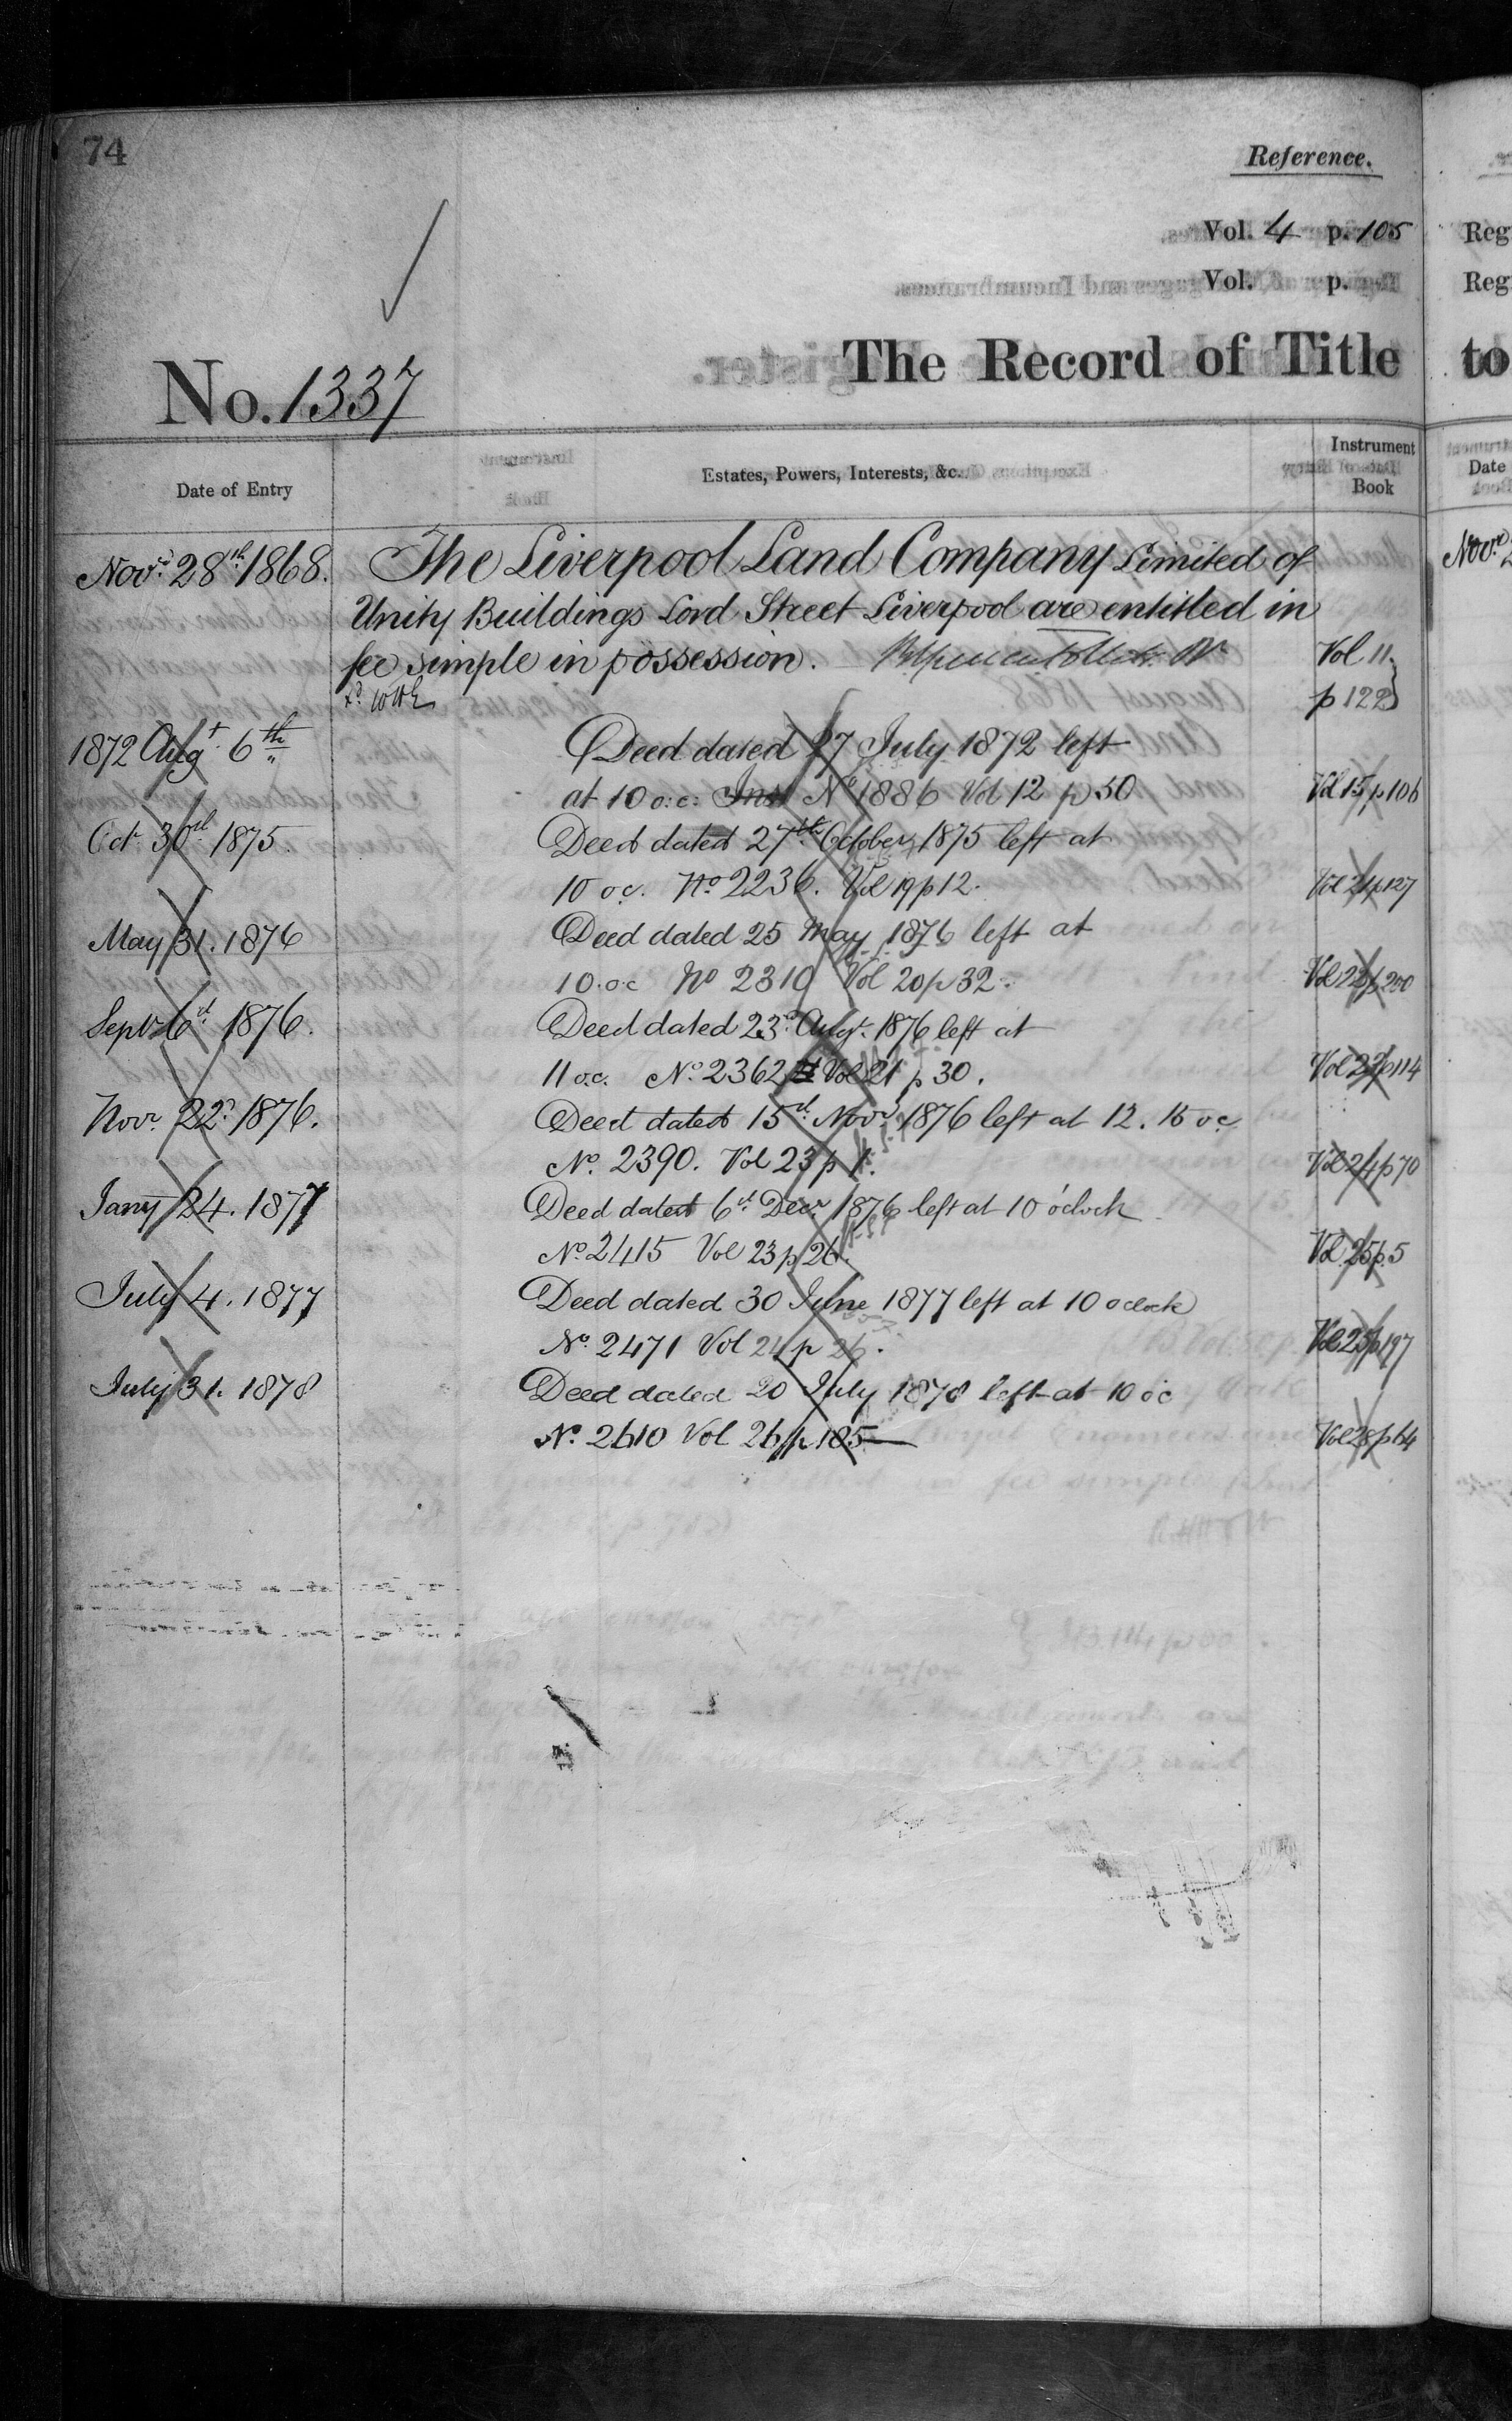 74
Reference.
Vol. 4 p. 105
Vol. p.
No. 1337
The Record of Title
Date of Entry
Estates, Powers, Interests, &c.
Instrument
Book
Novr. 28th 1868. The Liverpool Land Company Limited of
Unity Buildings Lord Street Liverpool are entitled in
fee simple in possession. Vol 11.
p 122
1872 Augt. 6th Deed dated 27 July 1872 left
at 10 o.c. Inst No 1886 Vol 12 p 50 Vol 15 p 106
Oct 30th 1875. Deed dated 27th October 1875 left at
10 o.c. No 2236. Vol 19 p 12. Vol 21 p 127
May 31. 1876 Deed dated 25 May 1876 left at
10.o.c No 2310 Vol 20 p 32. Vol 22 p 200
Septr 6th 1876. Deed dated 23rd Augt. 1876 left at
11 o.c. No. 2362 Vol 21 p 30. Vol 22 p 114
Novr. 22d 1876. Deed dated 15th Novr. 1876 left at 12.15 oc
No. 2390. Vol 23 p 1. Vol 24 p 70
Jany 24. 1877 Deed dated 6th Decr 1876 left at 10 o'clock
No. 2415 Vol 23 p 26. Vol. 25 p. 5
July 4. 1877 Deed dated 30 June 1877 left at 10 oclock
No. 2471 Vol 24 p 26. Vol 25 p 197
July 31. 1878 Deed dated 20 July 1878 left at 10 oc
No. 2610 Vol 26 p 185 Vol 28 p 64
Reg
Reg
to
Date
Novr.